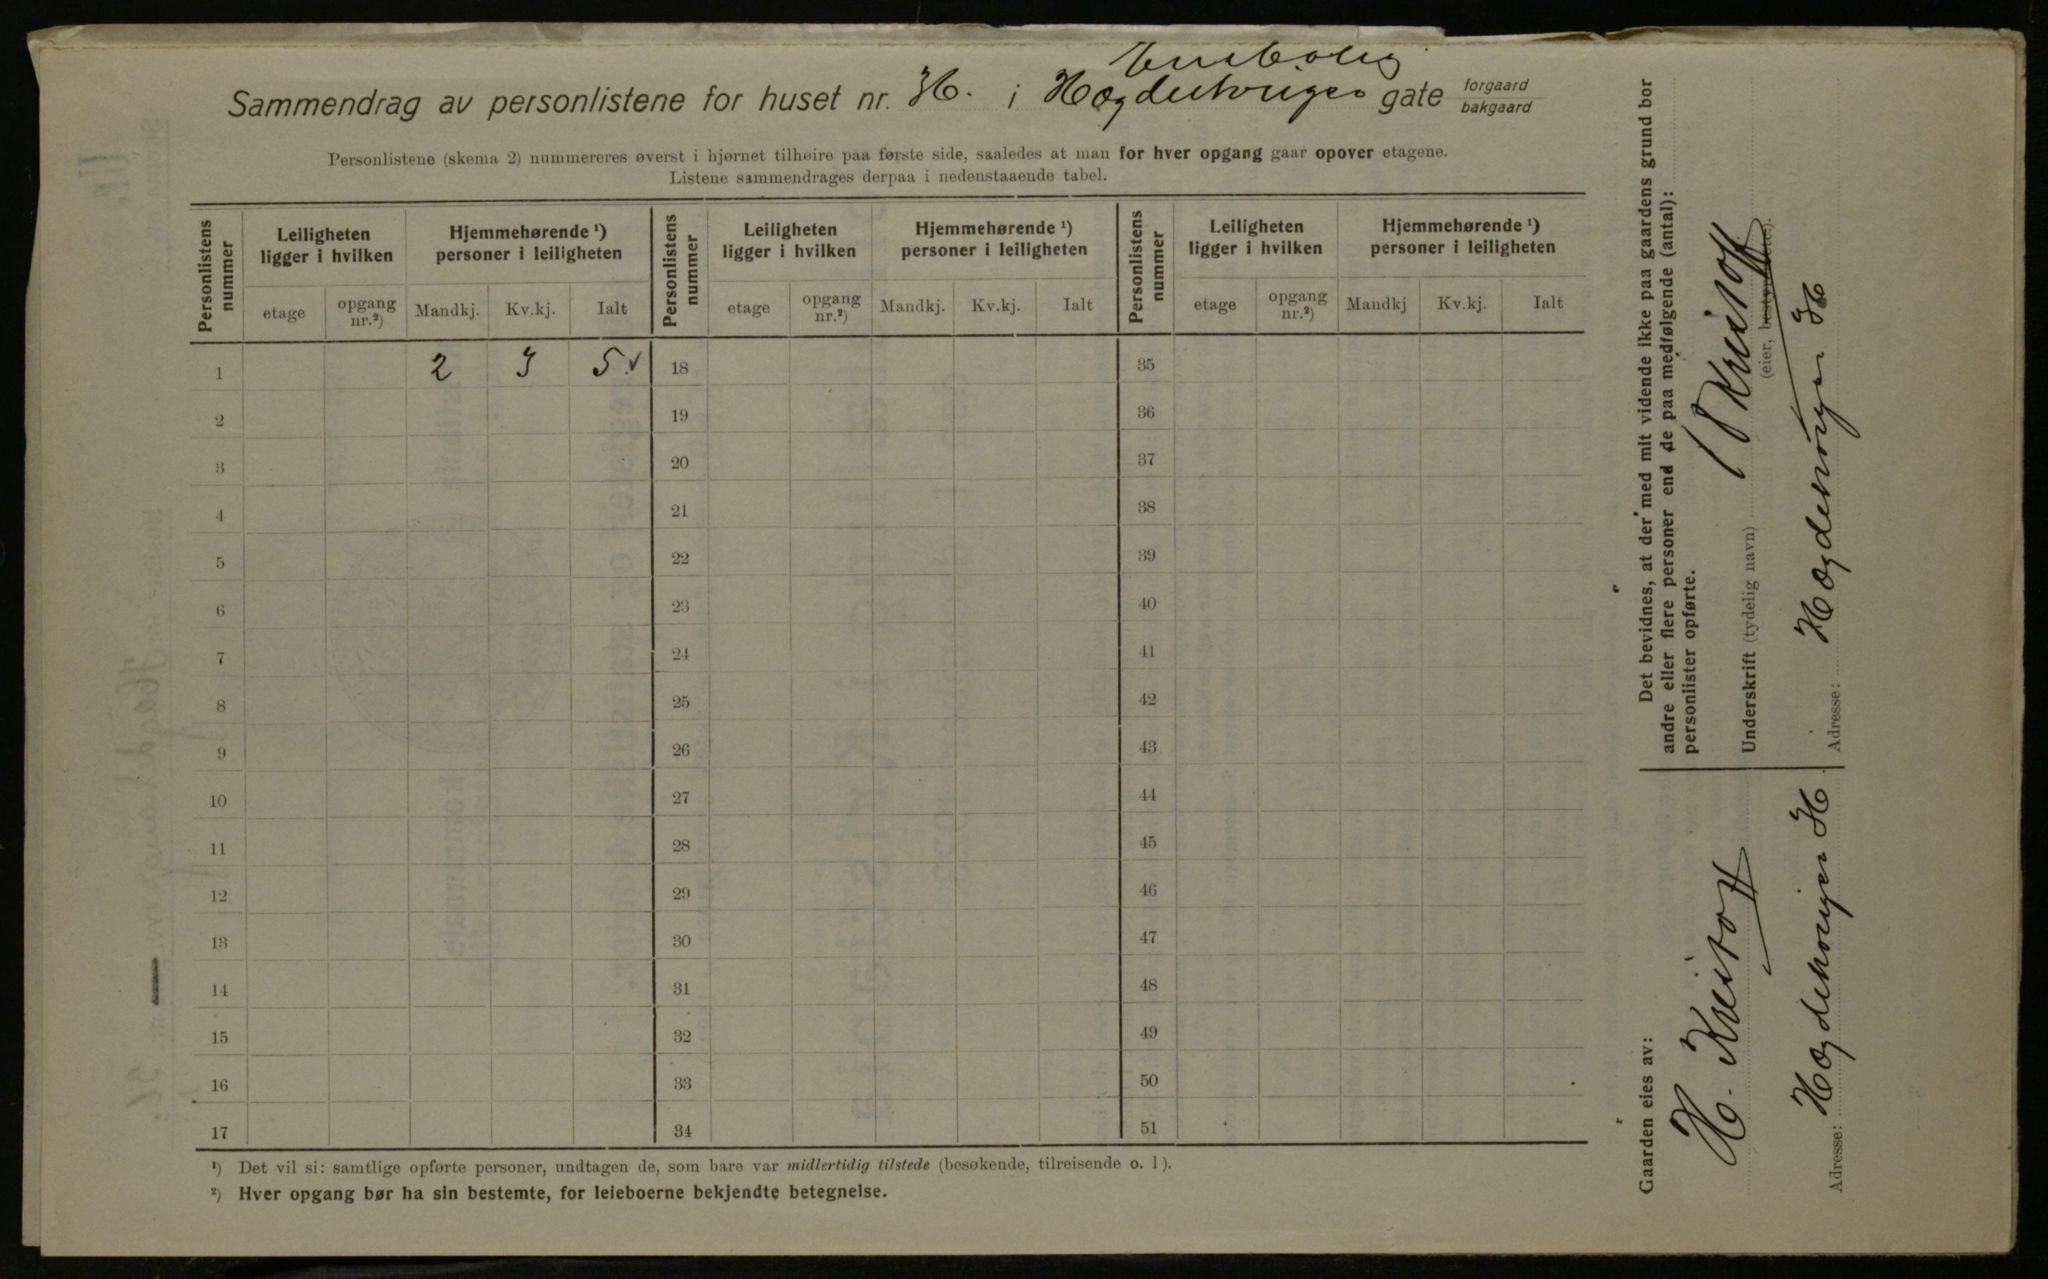 Sammendrag av personlistene for huset nr. H. i Hægdehougen gate forgaard bakgaard
Personlistene (skema 2) nummereres øverst i hjørnet tilhøire paa første side, saaledes at man for hver opgang gaar opover etagene.
Listene sammendrages derpaa i nedenstaaende tabel.
Personlistens nummer Leiligheten ligger i hvilken Hjemmehørende ¹) personer i leiligheten Personlistens nummer Leiligheten ligger i hvilken Hjemmehørende ¹) personer i leiligheten Personlistens nummer Leiligheten ligger i hvilken Hjemmehørende ¹) personer i leiligheten
etage opgang nr.²) Mandkj. Kv.kj. Ialt etage opgang nr.²) Mandkj. Kv.kj. Ialt etage opgang nr.²) Mandkj Kv.kj. Ialt
1 2 3 5 18 35
2 19 36
3 20 37
4 21 38
5 22 39
6 23 40
7 24 41
8 25 42
9 26 43
10 27 44
11 28 45
12 29 46
13 30 47
14 31 48
15 32 49
16 33 50
17 34 51
¹) Det vil si: samtlige opførte personer, undtagen de, som bare var midlertidig tilstede (besøkende, tilreisende o. l).
²) Hver opgang bør ha sin bestemte, for leieboerne bekjendte betegnelse.
Det bevidnes, at der med mit vidende ikke paa gaardens grund bor
andre eller flere personer end de paa medfølgende (antal):
personlister opførte.
Underskrift (tydelig navn)
(eier, bestyrer etc).
Adresse: Hægdehougen H
Gaarden eies av:
H. Kristoff
Adresse: Hægdehougen H